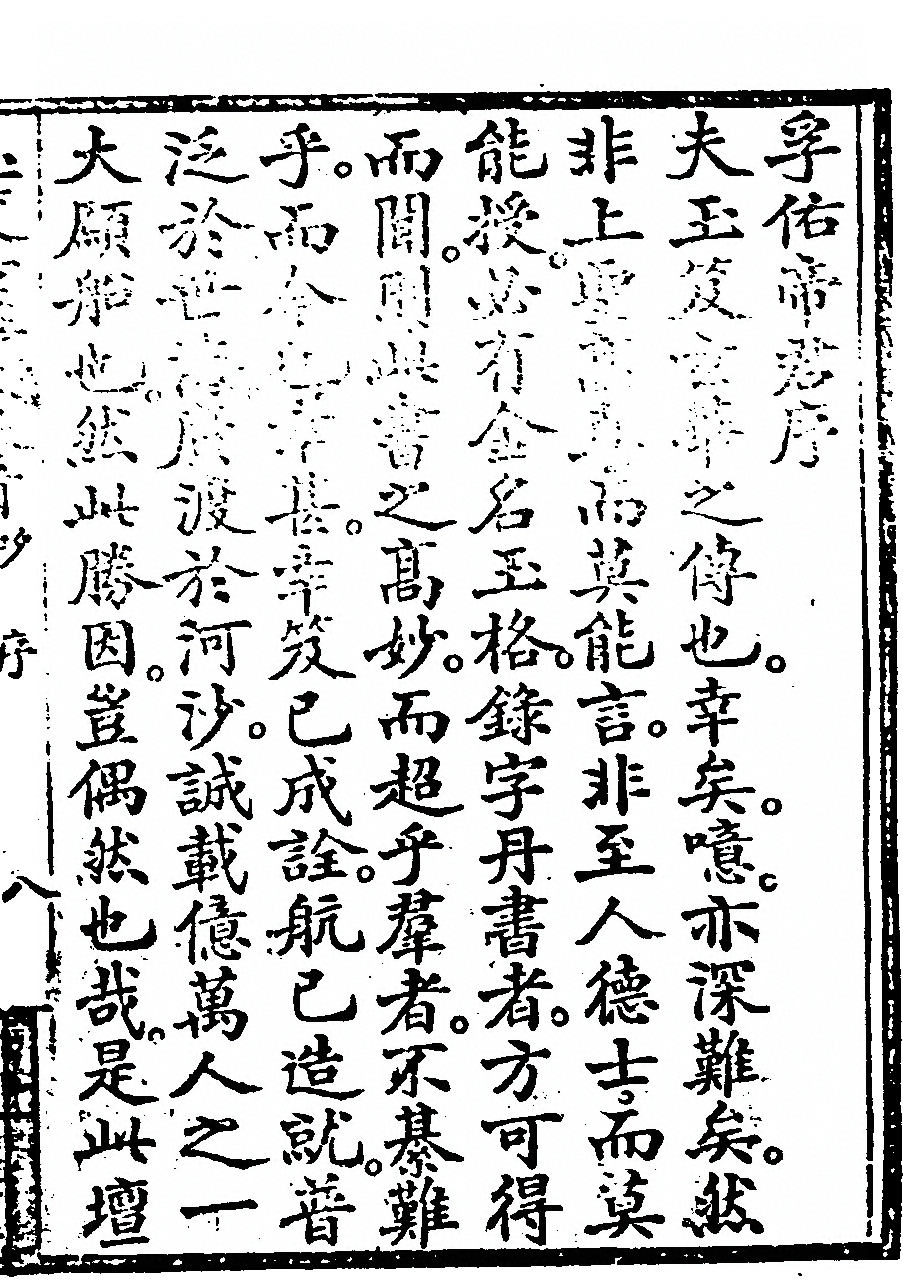 孚佑帝君序
夫玉笈玄華之傳也。幸矣。噫。亦深難矣。然
非上聖高真。而莫能言。非至人德士。而莫
能授。必有金名玉格。錄字丹書者。方可得
而聞。則此書之高妙。而超乎羣者。不綦難
乎。而今也幸甚。幸笈已成詮。航已造就。普
泛於世。廣渡於河沙。誠載億萬人之一
大願船也。然此勝因。豈偶然也哉。是此壇
序
八